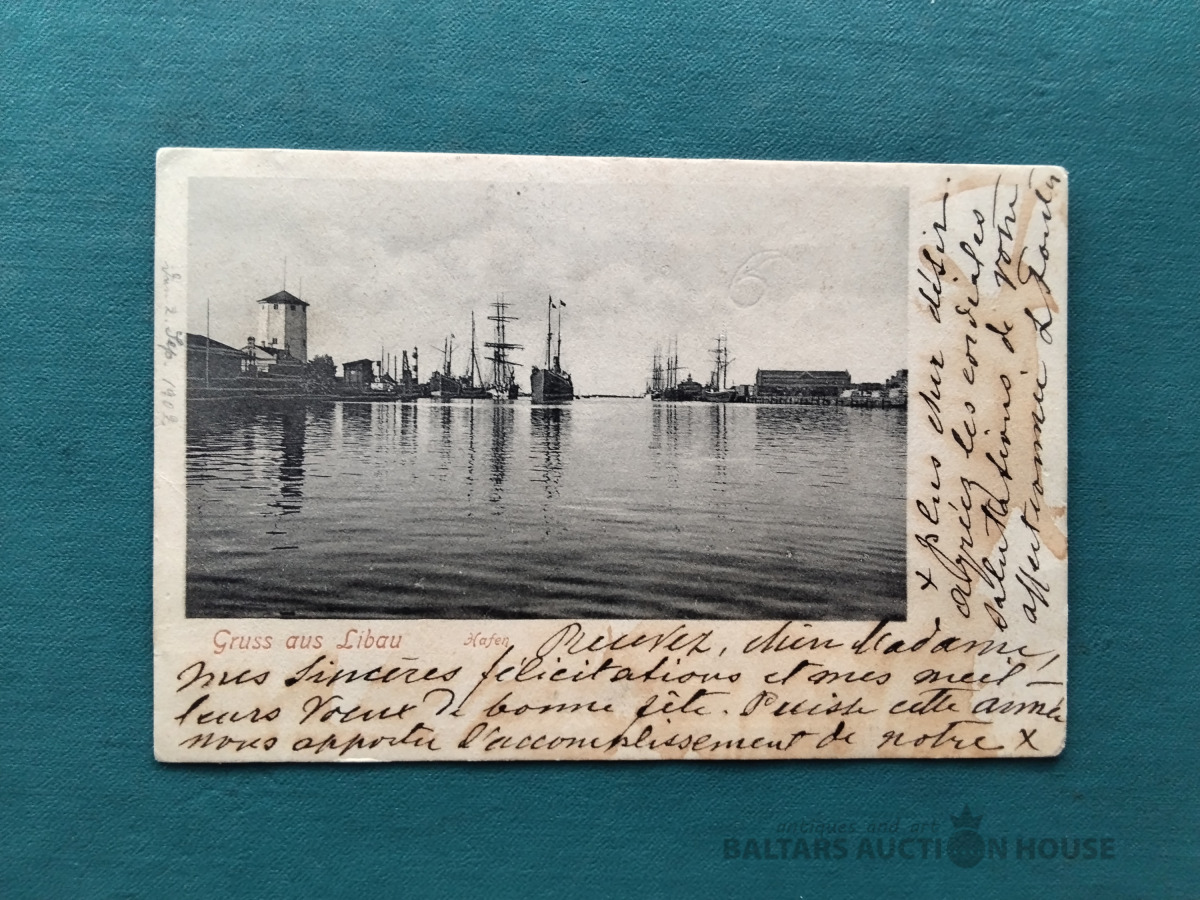 Gruss aus Libau
Hafen
Recevez, chère Madame,
mes sincères félicitations et mes meil-
leurs voeux de bonne fête. Puisse cette année
nous apporter l'accomplissement de notre x
x plus cher désir.
agréez les cordiales
salutations de votre
affectionnée L
2. Sep. 1902
antiques and art
BALTARS AUCTION HOUSE